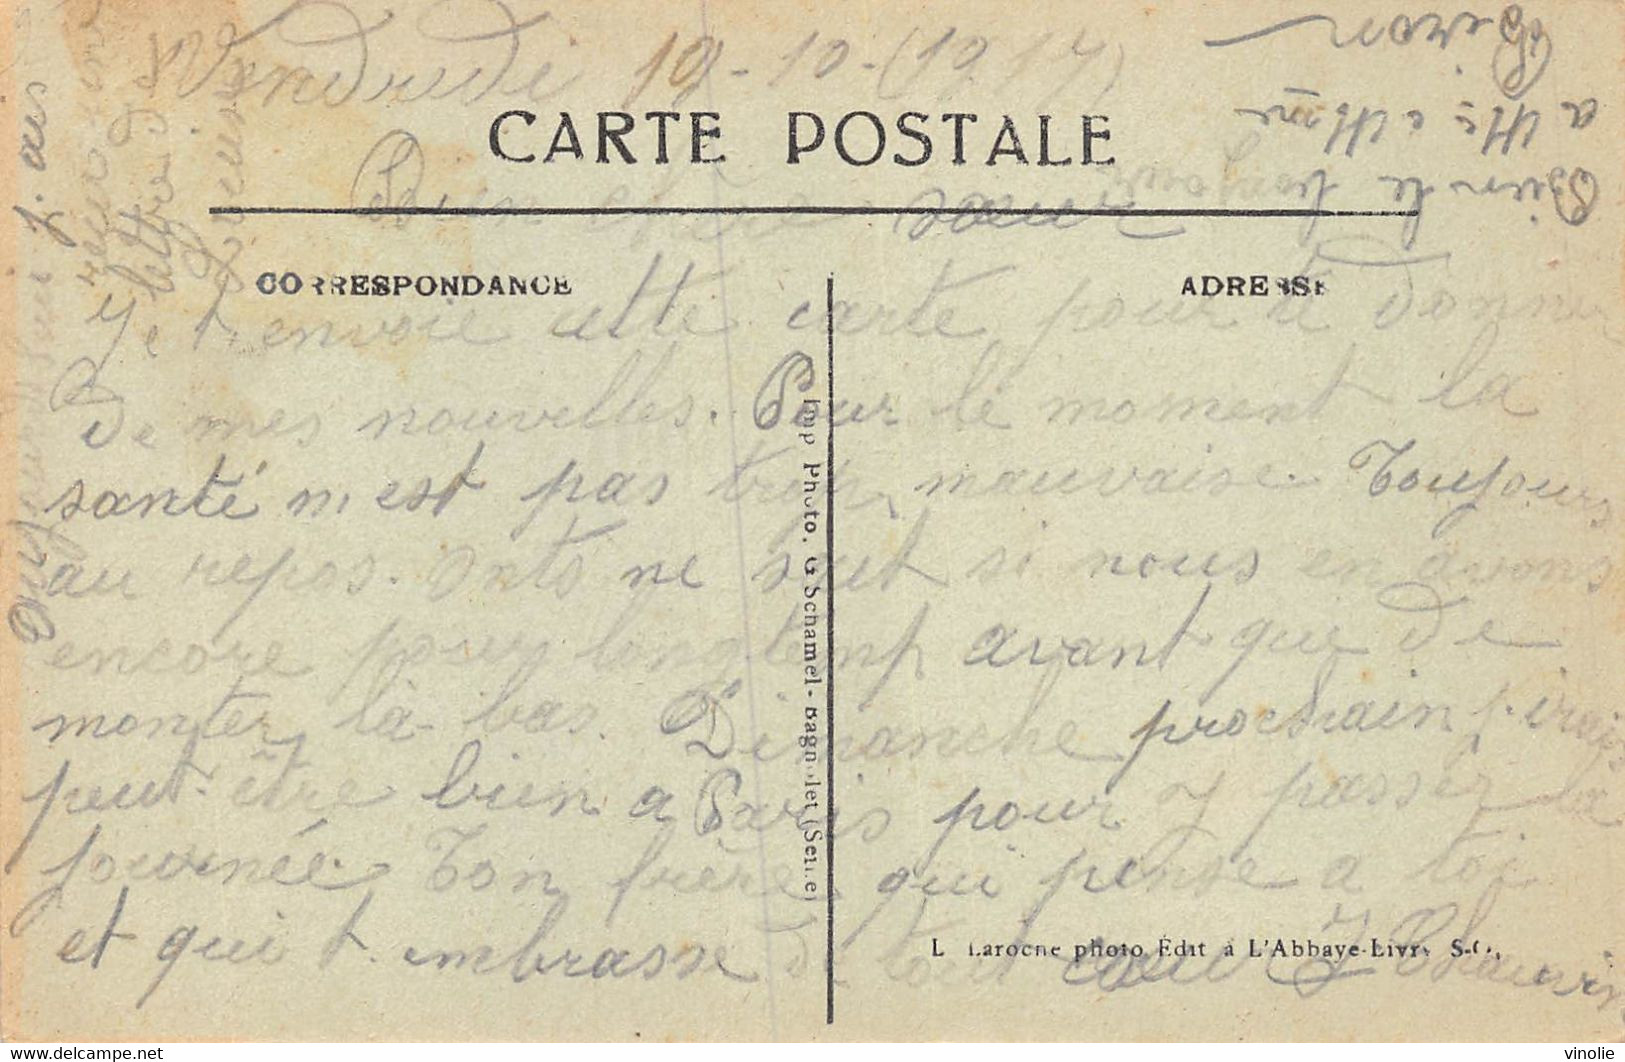 Vendredi 19-10-(1917)
CARTE POSTALE
Bien chère sœur
CORRESPONDANCE
ADRESSE
Je t envoie cette carte pour te donner
De mes nouvelles. Pour le moment la
santé m est pas trop mauvaise. Toujours
au repos. Onts ne sait si nous en avons
encore pour longtemp avant que de
monter là-bas. Dimanche prochain j irais
peut-être bien a Paris pour y passer la
journée. Ton frère qui pense a toi
et qui t embrasse de tout cœur J Chauvin
Bien le bonjour
a Mr et Mme
Biron
J. ais
reçu
lettre
Imp. Photo. G Schamel-Bagnolet (Seine)
L Laroche photo Edit à L'Abbaye-Livry S-O.
vinolie